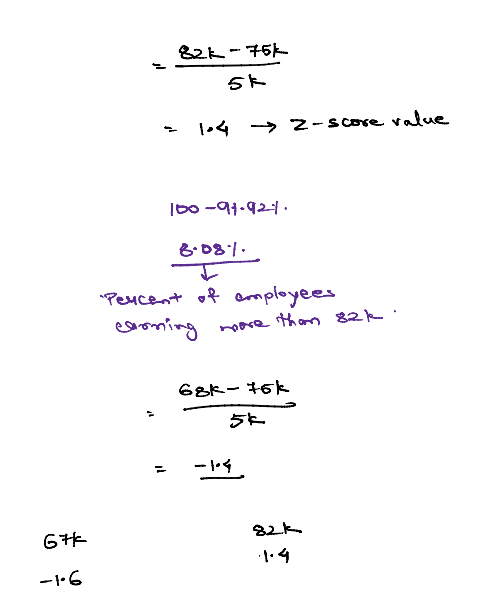 = 82k - 75k
5k
= 1.4 → Z-score value
100 - 91.92%.
8.08%.
Percent of employees
earning more than 82k.
= 68k - 75k
5k
= -1.4
67k 82k
-1.6 1.4